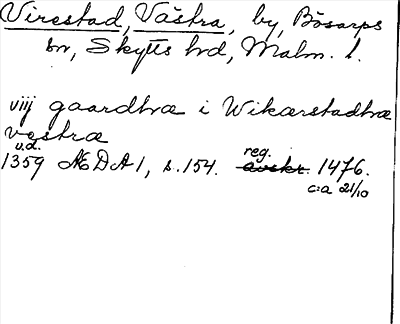 Virestad, Västra, by, Bösarps
sn, Skytts hd, Malm. l.
viij gaardhæ i Wikærstadhæ
vestræ
u.d.
1359 ÆDA 1, s. 154. reg. avskr. 1476.
c:a 21/10